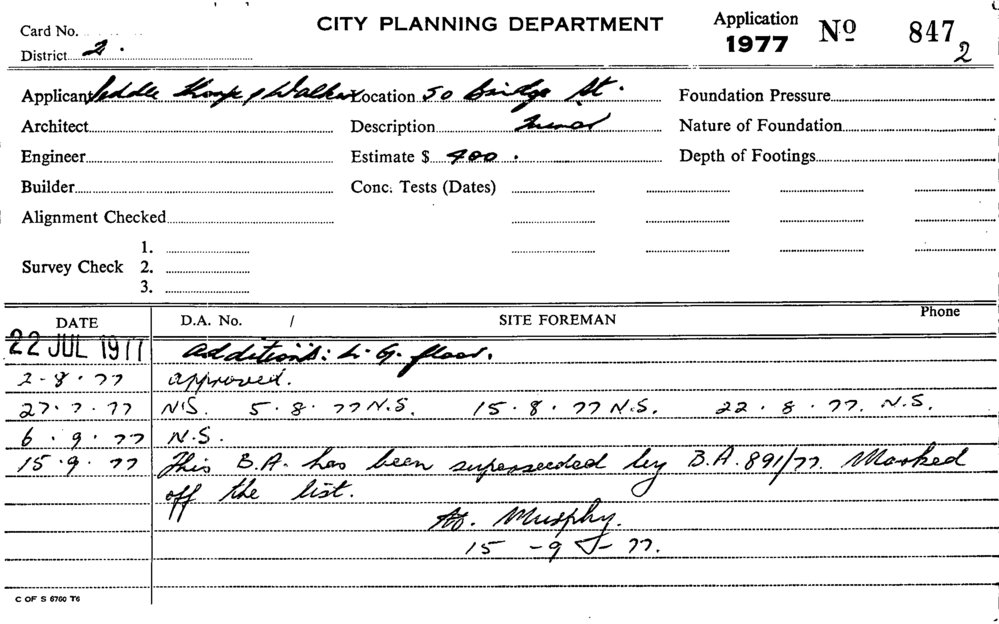 CITY PLANNING DEPARTMENT Application 1977 Nº 847 2
Card No.
District 2.
Applicant Peddle Thorp & Walker Location 50 Bridge St. Foundation Pressure
Architect Description Minor Nature of Foundation
Engineer Estimate $ 400. Depth of Footings
Builder Conc. Tests (Dates)
Alignment Checked
1.
Survey Check 2.
3.
DATE D.A. No. / SITE FOREMAN Phone
22 JUL 1977 Additions: L. G. floor.
2-8-77 approved.
27.7.77 N.S. 5.8.77 N.S. 15.8.77 N.S. 22.8.77. N.S.
6.9.77 N.S.
15.9.77 This B.A. has been superseeded by B.A. 891/77. Marked
off the list.
Murphy.
15-9-77.
C OF S 6760 T6